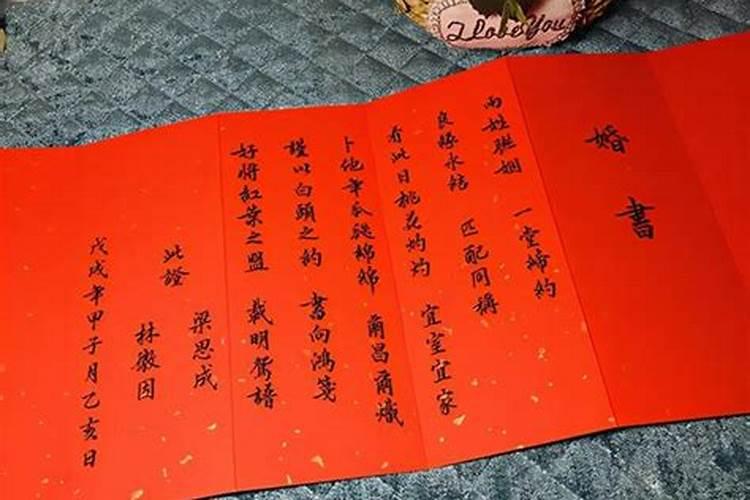 婚書
兩姓聯姻 一堂締約
良緣永結 匹配同稱
看此日桃花灼灼 宜室宜家
卜他年瓜瓞棉綿 爾昌爾熾
謹以白頭之約 書向鴻箋
好將紅葉之盟 載明鴛譜
此證
梁思成
林徽因
戊戌年甲子月乙亥日
I love You